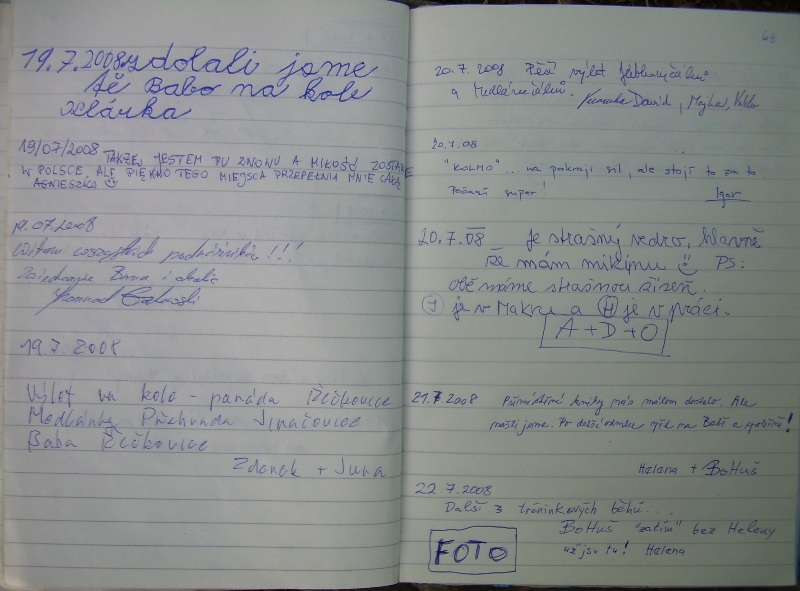 19.7.2008 zdolali jsme
tě Babo na kole
Klárka
19/07/2008 TAKŻE JESTEM TU ZNOWU A MIŁOŚĆ ZOSTAŁA
W POLSCE, ALE PIĘKNO TEGO MIEJSCA PRZEPEŁNIA MNIE CAŁĄ
AGNIESZKA
19.07.2008
Witam wszystkich podróżników!!!
Brna i okolic
Konrad
19.7 2008
Výlet na kolo - Řečkovice
Medlánky Přehrada Jinačovice
Baba Řečkovice
Zdenek + Jura
68
20.7.2008 Pěší výlet
a David, Majka,
20.7.08
"KOLMO"... na pokraji sil, ale stojí to za to.
Počasí super!
Igor
20.7.08 Je strašný vedro, hlavně
že mám mikinu PS:
obě máme strašnou žízeň.
J je v Makru a H je v práci.
A+D+O
21.7 2008 knihy nás málem dostalo. Ale
našli jsme. Po delší odmlce opět na Babě a spolu!
Helena + BoHuš
22.7.2008
Další 3 tréninkových běhů...
BoHuš "zatím" bez Heleny
už jsu tu! Helena
FOTO